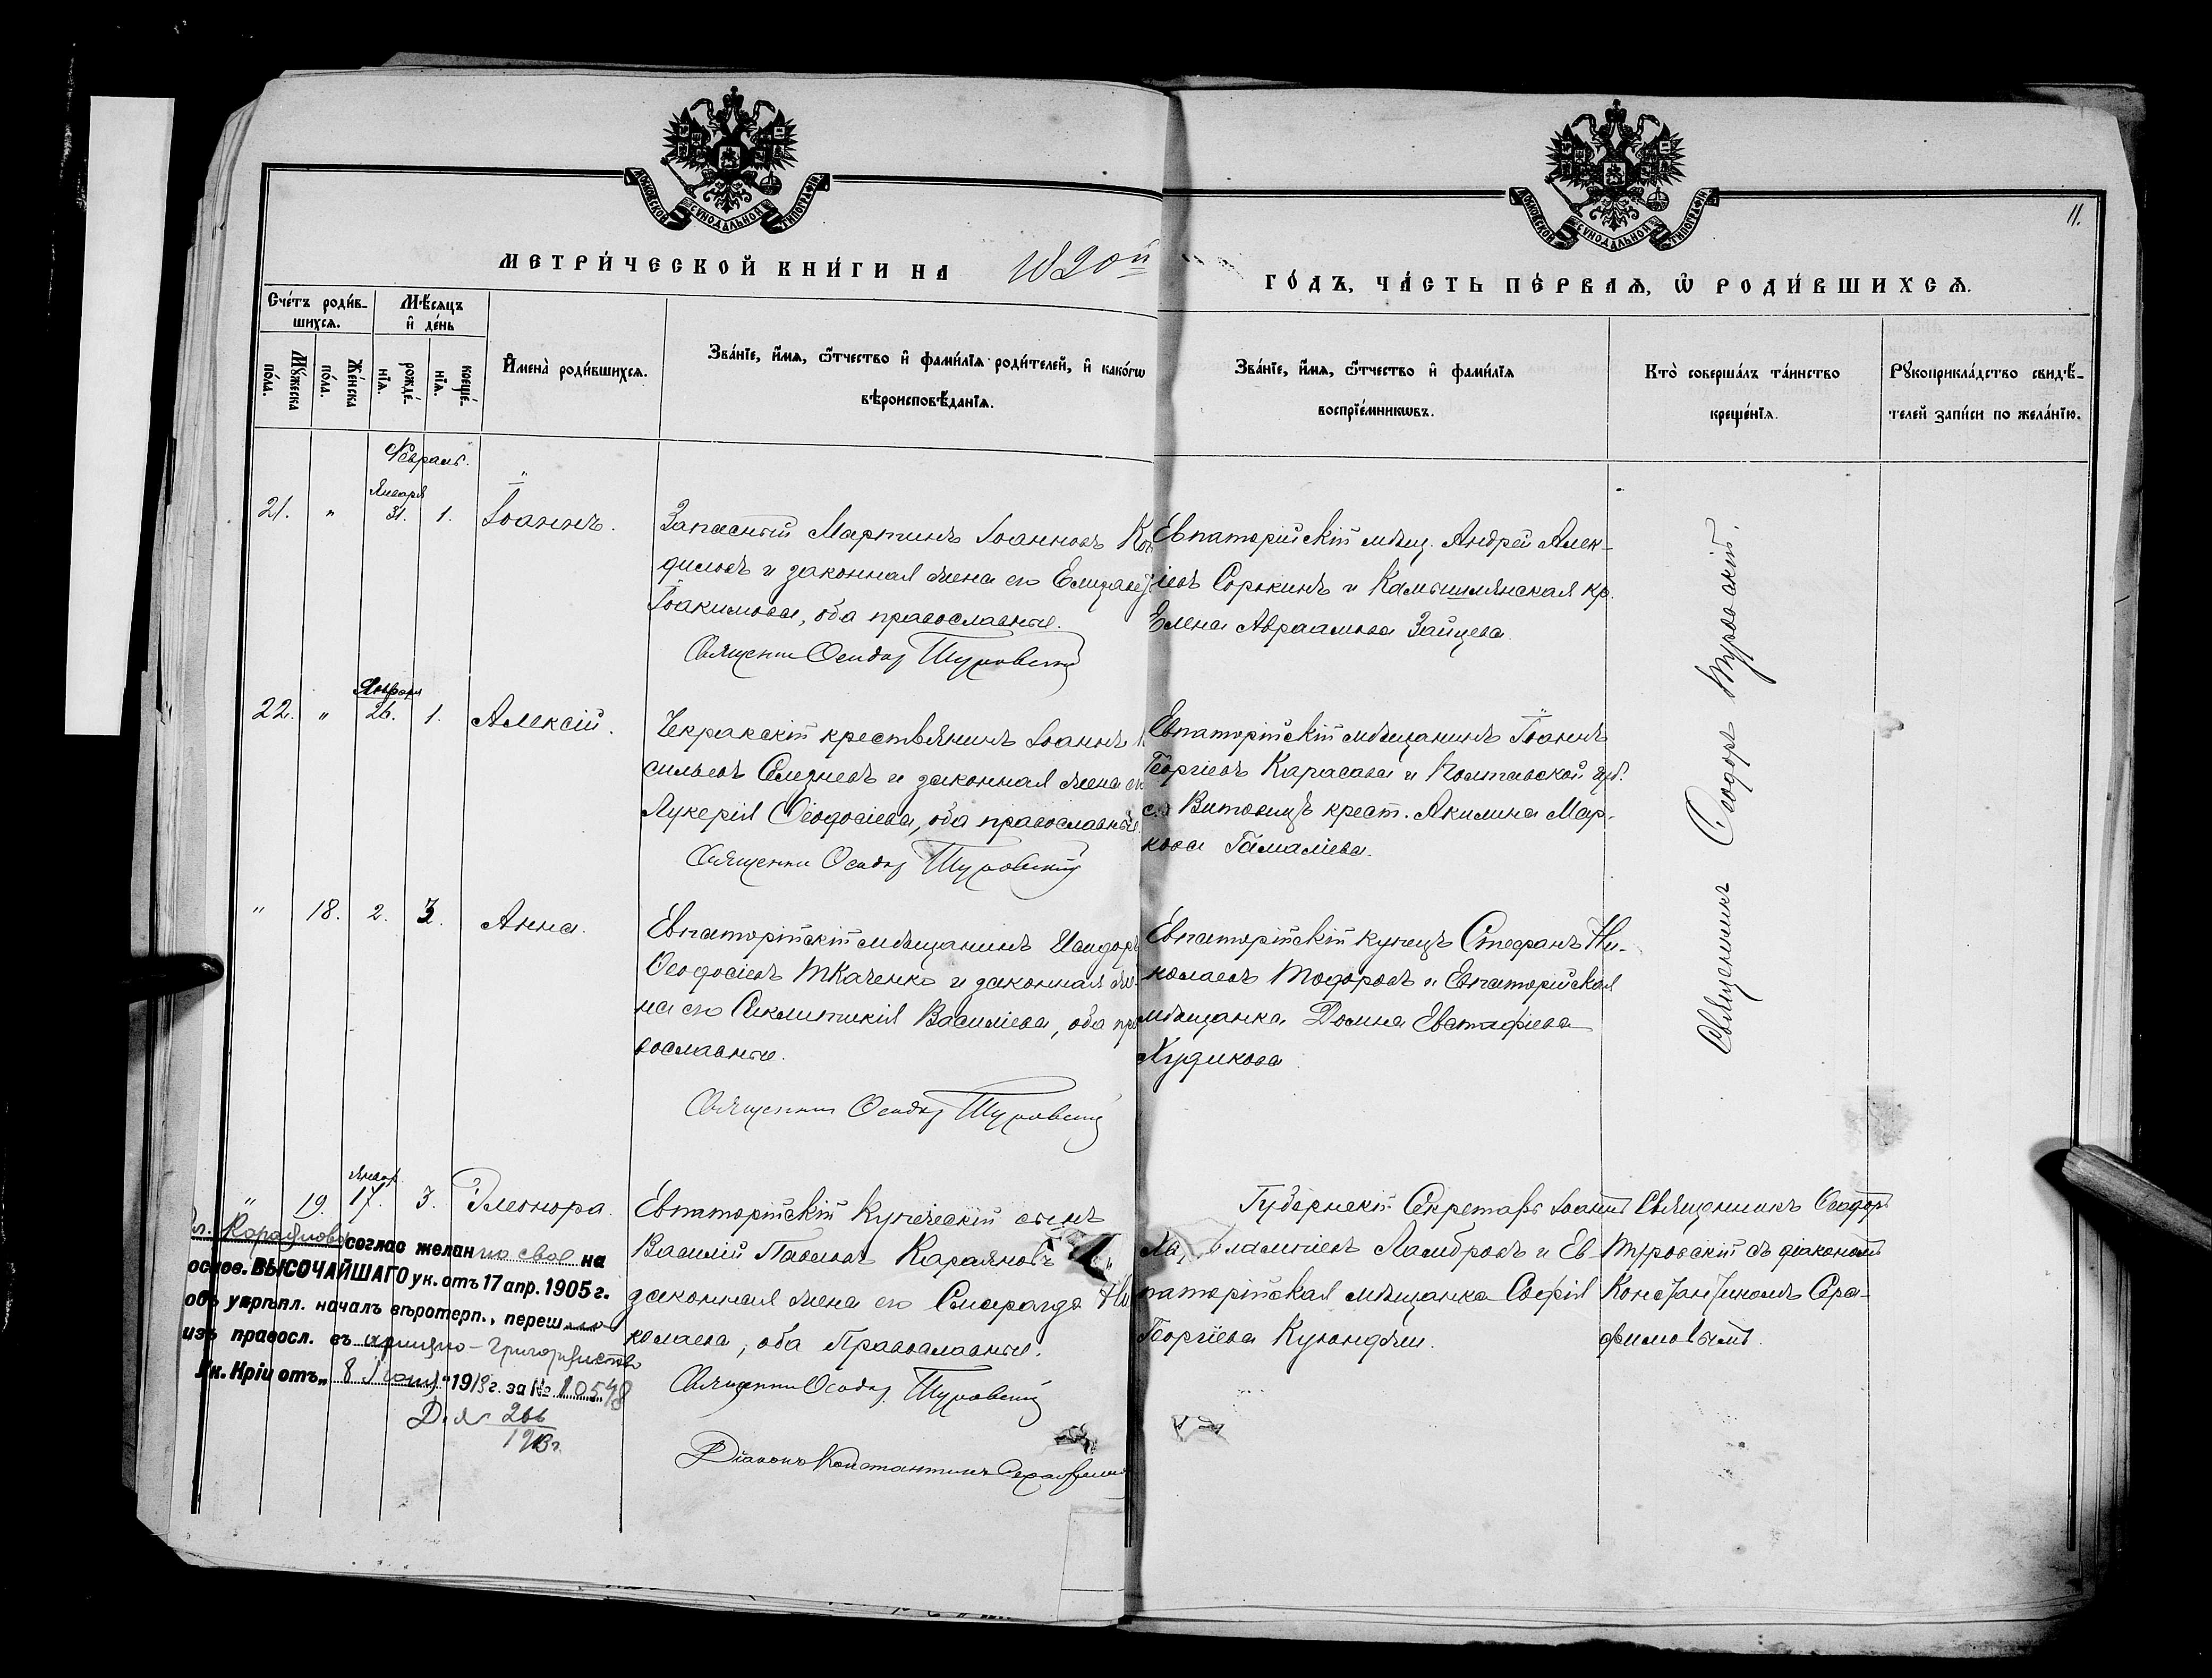 МОСКОВСКОЙ СѴНОДАЛЬНОЙ ТИПОГРАФІИ
МОСКОВСКОЙ СѴНОДАЛЬНОЙ ТИПОГРАФІИ
11.
МЕТРИ́ЧЕСКОЙ КНИ́ГИ НА
ГО́ДЪ, ЧА́СТЬ ПЕ́РВАѦ, Ѡ҆ РОДИ́ВШИХСѦ.
Сче́тъ роди́в-
шихсѧ.
Мꙋ́жеска
по́ла.
Же́нска
по́ла.
Мѣ́сѧцъ
и҆ де́нь
рожде́-
нїѧ.
креще́-
нїѧ.
И҆мена̀ роди́вшихсѧ.
Зва́нїе, и҆́мѧ, ѻ҆́тчество и҆ фами́лїѧ роди́телей, и҆ како́гѡ
вѣроисповѣ́данїѧ.
Зва́нїе, и҆́мѧ, ѻ҆́тчество и҆ фами́лїѧ
воспрїе́мникѡвъ.
Кто̀ соверша́лъ та́инство
креще́нїѧ.
Рꙋкоприкла́дство свидѣ́-
телей за́писи по жела́нїю.
Февраль.
21. " Января 31. 1. Іоаннъ.
Запасный Мартинъ Іоанновъ
диловъ и законная жена его
Іоакимова, оба православные.
Священник Ѳеодор Туровский
Евпаторійскій мѣщ. Андрей Алек-
ѣевъ Сорокинъ и Камышлянская кр.
Елена Авраамова Зайцева.
22. " 26. 1. Алексій.
Чекракскій крестьянинъ Іоаннъ
сильевъ Селезневъ и законная жена его
Лукерія Ѳеодосіева, оба православные.
Священник Ѳеодор Туровский
Евпаторійскій мѣщанинъ Іоаннъ
Георгіевъ Карасава и Полтавской губ.
крест. Акилина Мар-
кова Гамаліева.
" 18. 2. 3. Анна.
Евпаторійскій мѣщанинъ Исидоръ
Ѳеодосіевъ Ткаченко и законная же-
на его Синклитикія Василіева, оба пра
вославные.
Священник Ѳеодор Туровский
Евпаторійскій купецъ Стефанъ Ни-
колаевъ Тодоровъ и Евпаторійская
мѣщанка Домна Евстафіева
Худикова
Священникъ Ѳеодоръ Туровскій.
" 19. Январ 17. 3. Элеонора.
Евпаторійскій Купеческій сынъ
Василій Павловъ Караяновъ и
законная жена его Смарагда Ни
колаева, оба Православные.
Священник Ѳеодор Туровский
Діаконъ Константинъ Серафимовъ
Губернскій Секретарь Іоаннъ
Ламбровъ и Ев-
паторійская мѣщанка Софія
Георгіева Куюнджи.
Священникъ Ѳеодоръ
Туровскій съ діакономъ
Константиномъ Сера-
фимовымъ.
соглас желан но свое на
основ. ВЫСОЧАЙШАГО ук. отъ 17 апр. 1905 г.
объ укрѣпл. началъ вѣротерп., переш
изъ правосл. въ армяно-григоріанство
Ук. Крїи отъ „8 Іюня" 1913 г. за № 10548
Дѣл 266
1913 г.